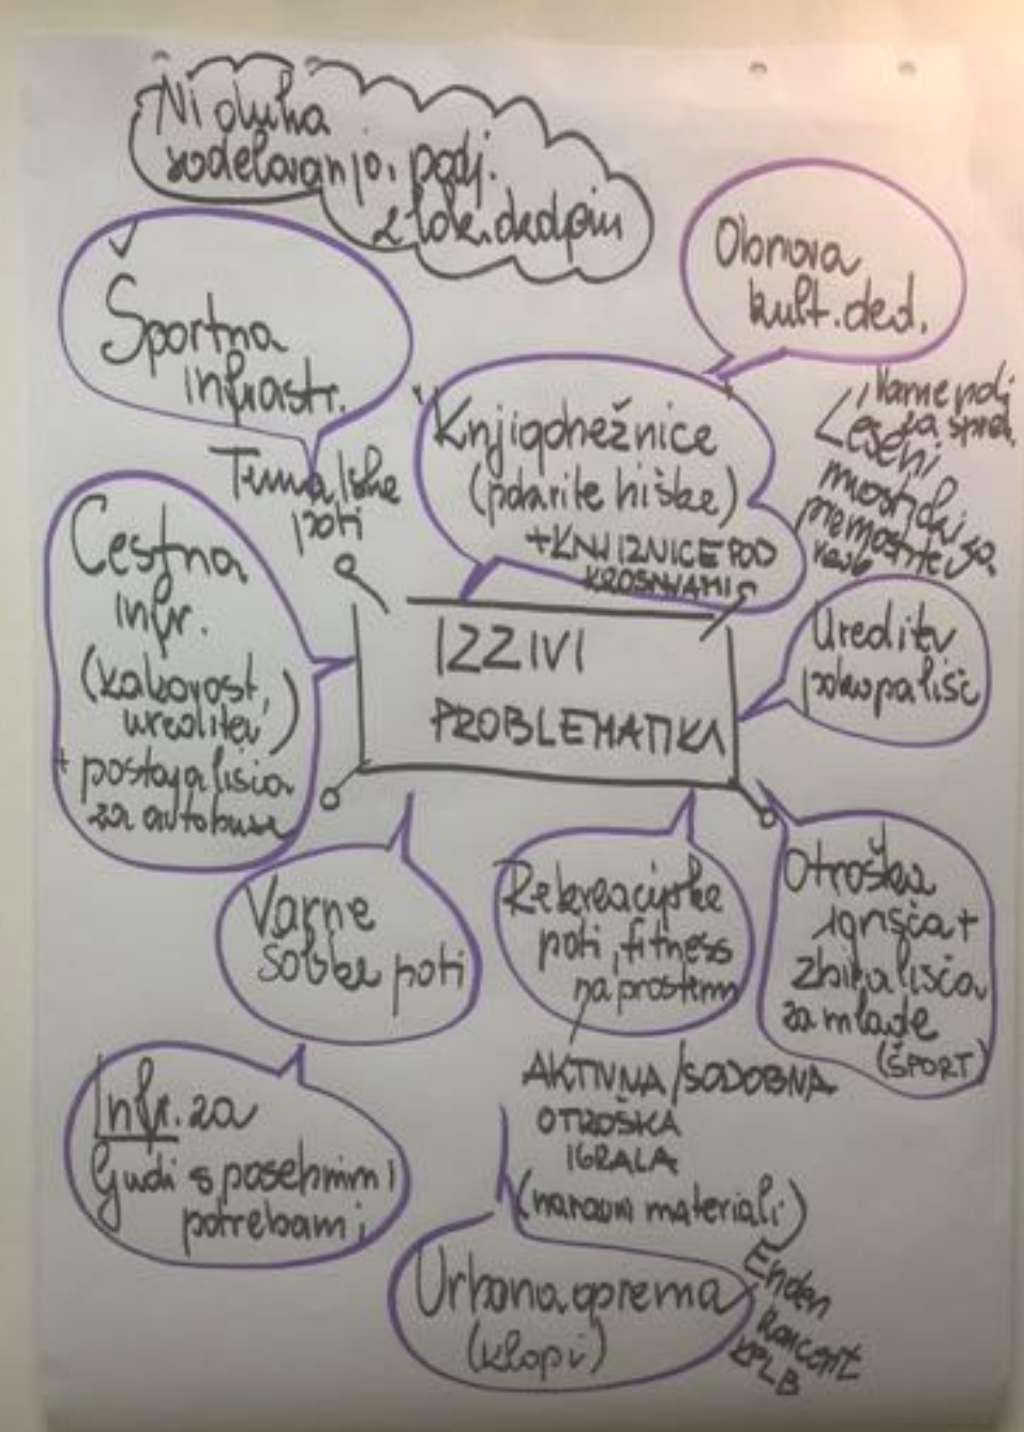 Ni duha
sodelovanja, podj.
z lok. dedopim
Obnova
kult. ded.
Športna
infrastr.
Knjigobežnice
(podarite hiške)
+ KNJIŽNICE POD
KROŠNJAMI
Varne polj
za spreh.
Leseni
mostički za
premostitev
Tematske
poti
Cestna
infr.
(kakovost,
ureditev)
+ postajališča
za avtobuse
IZZIVI
PROBLEMATIKA
Ureditv
pokopališč
Varne
šolske poti
Rekreacijske
poti, fitness
na prostem
Otroška
igrišča +
zbirališča
za mlade
(ŠPORT)
AKTIVNA/SODOBNA
OTROŠKA
IGRALA
(naravni materiali)
Infr. za
ljudi s posebnimi
potrebami
Urbana oprema
(klopi)
Enoten
koncept
KPLB